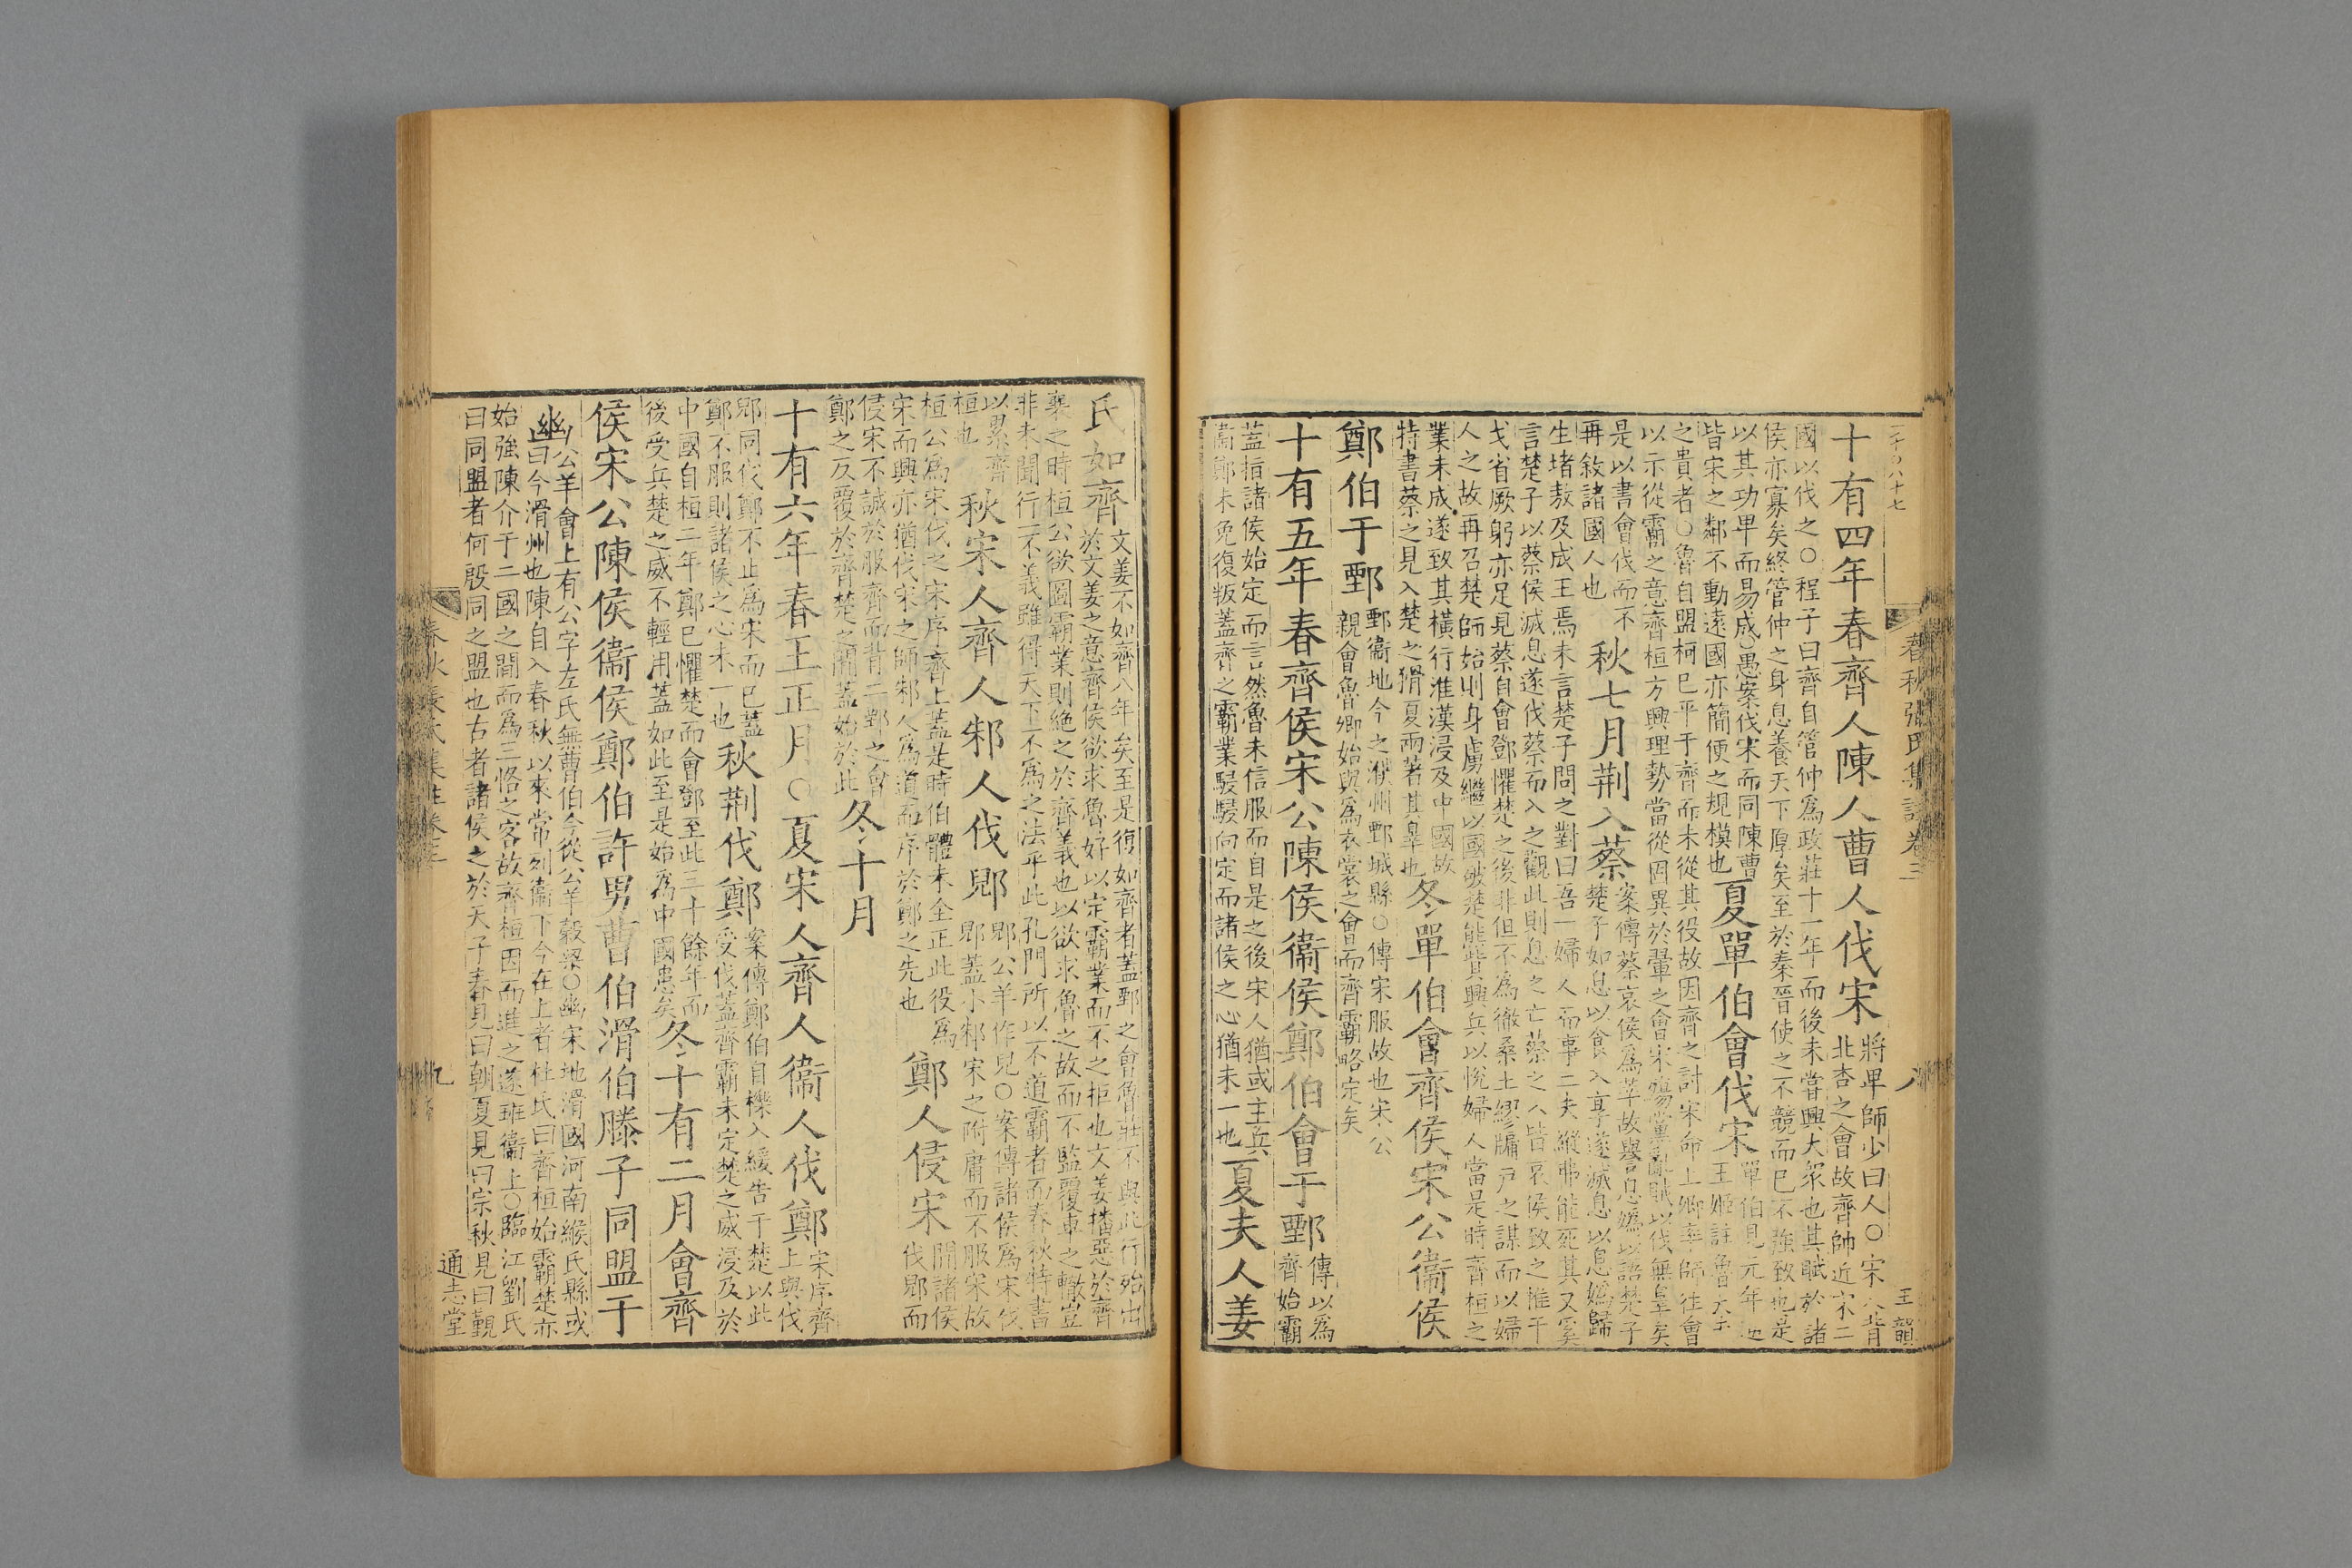 春秋張氏集註卷三
八
十有四年春齊人陳人曹人伐宋將卑師少曰人○宋人背
北杏之會故齊師近宋二
國以伐之○程子曰齊自管仲爲政莊十一年而後未嘗興大衆也其賦於諸
侯亦寡矣終管仲之身息養天下厚矣至於秦晉使之不競而已不強致也是
以其功卑而易成○愚案伐宋而同陳曹
皆宋之鄰不動遠國亦簡便之規模也夏單伯會伐宋單伯見元年逆
王姬註魯大夫
之貴者○魯自盟柯已平于齊而未從其役故因齊之討宋命上卿率師往會
以示從霸之意齊桓方興理勢當從固異於翬之會宋殤黨亂賊以伐無辠矣
是以書會伐而不
再敘諸國人也秋七月荆入蔡案傳蔡哀侯爲莘故譽息嬀以語楚子
楚子如息以食入享遂滅息以息嬀歸
生堵敖及成王焉未言楚子問之對曰吾一婦人而事二夫縱弗能死其又奚
言楚子以蔡侯滅息遂伐蔡而入之觀此則息之亡蔡之入皆哀侯致之惟干
戈省厥躬亦足見蔡自會鄧懼楚之後非但不爲徹桑土繆牖戸之謀而以婦
人之故再召楚師始則身虜繼以國破楚能貲興兵以悅婦人當是時齊桓之
業未成遂致其橫行淮漢浸及中國故
特書蔡之見入楚之猾夏兩著其辠也冬單伯會齊侯宋公衞侯
鄭伯于鄄鄄衞地今之濮州鄄城縣○傳宋服故也宋公
親會魯卿始與爲衣裳之會而齊霸略定矣
十有五年春齊侯宋公陳侯衞侯鄭伯會于鄄傳以爲
齊始霸
蓋指諸侯始定而言然魯未信服而自是之後宋人猶或主兵
衞鄭未免復叛蓋齊之霸業駸駸向定而諸侯之心猶未一也夏夫人姜
氏如齊文姜不如齊八年矣至是復如齊者蓋鄄之會魯莊不與此行殆出
於文姜之意齊侯欲求魯好以定霸業而不之拒也文姜播惡於齊
襄之時桓公欲圖霸業則絶之於齊義也以欲求魯之故而不監覆車之轍豈
非未聞行一不義雖得天下不爲之法乎此孔門所以不道霸者而春秋特書
以累齊
桓也秋宋人齊人邾人伐郳郳公羊作兒○案傳諸侯爲宋伐
郳蓋小邾宋之附庸而不服宋故
桓公爲宋伐之宋序齊上蓋是時伯體未全正此役爲
宋而興亦猶伐宋之師邾人爲道而序於鄭之先也鄭人侵宋間諸侯
伐郳而
侵宋不誠於服齊而背二鄄之會
鄭之反覆於齊楚之間蓋始於此冬十月
十有六年春王正月○夏宋人齊人衞人伐鄭宋序齊
上與伐
郳同伐鄭不止爲宋而已蓋
鄭不服則諸侯之心未一也秋荆伐鄭案傳鄭伯自櫟入緩告于楚以此
受伐蓋齊霸未定楚之威浸及於
中國自桓二年鄭已懼楚而會鄧至此三十餘年而
後受兵楚之威不輕用蓋如此至是始爲中國患矣冬十有二月會齊
侯宋公陳侯衞侯鄭伯許男曹伯滑伯滕子同盟于
幽公羊會上有公字左氏無曹伯今從公羊穀梁○幽宋地滑國河南緱氏縣或
曰今滑州也陳自入春秋以來常列衞下今在上者杜氏曰齊桓始霸楚亦
始強陳介于二國之間而爲三恪之客故齊桓因而進之遂班衞上○臨江劉氏
曰同盟者何殷同之盟也古者諸侯之於天子春見曰朝夏見曰宗秋見曰覲
春秋張氏集註卷三
九
通志堂